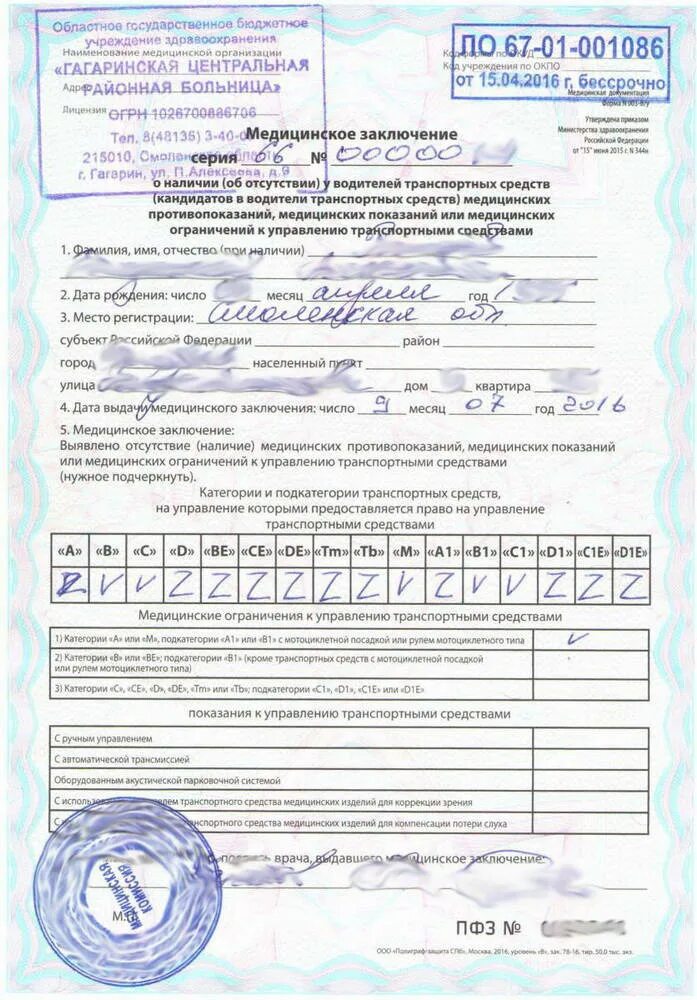 Областное государственное бюджетное
учреждение здравоохранения
Наименование медицинской организации
«ГАГАРИНСКАЯ ЦЕНТРАЛЬНАЯ
Адрес РАЙОННАЯ БОЛЬНИЦА»
Лицензия ОГРН 1026700886706
Тел. 8(48135) 3-40-
215010, Смоленская область
г. Гагарин, ул. П.Алексеева, д.9
Код формы по ОКУД
ПО 67-01-001086
Код учреждения по ОКПО
от 15.04.2016 г. бессрочно
Медицинская документация
Форма N 003-В/у
Утверждена приказом
Министерства здравоохранения
Российской Федерации
от "15" июня 2015 г. N 344н
Медицинское заключение
серия 66 № 00000
о наличии (об отсутствии) у водителей транспортных средств
(кандидатов в водители транспортных средств) медицинских
противопоказаний, медицинских показаний или медицинских
ограничений к управлению транспортными средствами
1. Фамилия, имя, отчество (при наличии)
2. Дата рождения: число месяц апреля год 1
3. Место регистрации: Смоленская обл.
субъект Российской Федерации район
город населенный пункт
улица дом квартира
4. Дата выдачи медицинского заключения: число 9 месяц 07 год 2016
5. Медицинское заключение:
Выявлено отсутствие (наличие) медицинских противопоказаний, медицинских показаний
или медицинских ограничений к управлению транспортными средствами
(нужное подчеркнуть).
Категории и подкатегории транспортных средств,
на управление которыми предоставляется право на управление
транспортными средствами
«A» «B» «C» «D» «BE» «CE» «DE» «Tm» «Tb» «M» «A1» «B1» «C1» «D1» «C1E» «D1E»
Z V V Z Z Z Z Z Z V Z V V Z Z Z
Медицинские ограничения к управлению транспортными средствами
1) Категории «A» или «M», подкатегории «A1» или «B1» с мотоциклетной посадкой или рулем мотоциклетного типа V
2) Категории «B» или «BE»; подкатегории «B1» (кроме транспортных средств с мотоциклетной посадкой
или рулем мотоциклетного типа)
3) Категории «C», «CE», «D», «DE», «Tm» или «Tb»; подкатегории «C1», «D1», «C1E» или «D1E»
показания к управлению транспортными средствами
С ручным управлением
С автоматической трансмиссией
Оборудованным акустической парковочной системой
С использованием водителем транспортного средства медицинских изделий для коррекции зрения
С транспортного средства медицинских изделий для компенсации потери слуха
подпись врача, выдавшего медицинское заключение:
МЕДИЦИНСКАЯ
КОМИССИЯ
М.П.
ПФЗ №
ООО «Полиграфзащита СПб», Москва, 2016, уровень «В», зак. 78-16, тир. 50,0 тыс. экз.